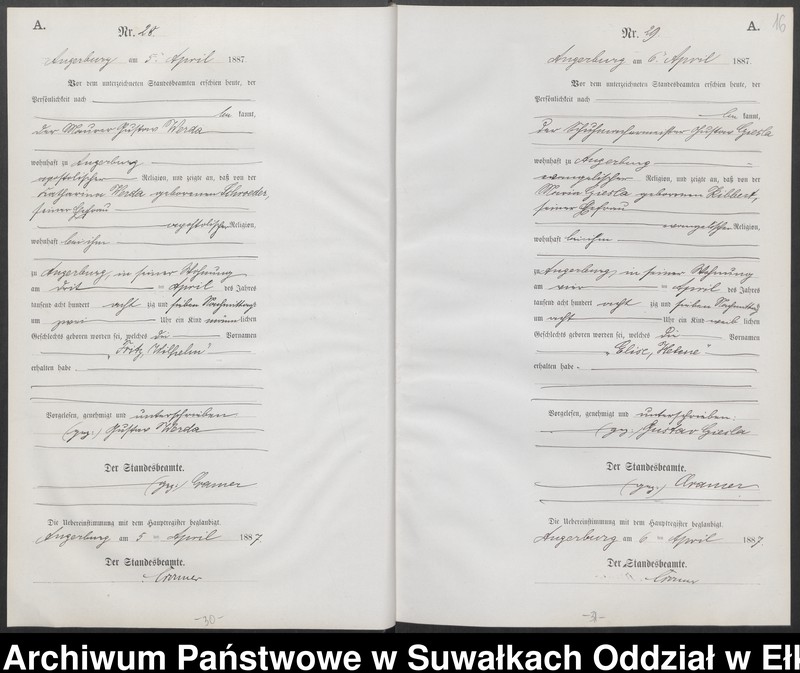 A.
Nr. 28.
Angerburg am 5. April 1887.
Vor dem unterzeichneten Standesbeamten erschien heute, der
Persönlichkeit nach
kannt,
der Maurer Gustav Werda
wohnhaft zu Angerburg
apostolischer Religion, und zeigte an, daß von der
Katharina Werda geborenen Schroeder,
seiner Ehefrau
apostolischer Religion,
wohnhaft bei ihm
zu Angerburg, in seiner Wohnung
am drei ten April des Jahres
tausend acht hundert acht zig und sieben Nachmittags
um zwei Uhr ein Kind männ lichen
Geschlechts geboren worden sei, welches die Vornamen
„Fritz, Wilhelm“
erhalten habe
Vorgelesen, genehmigt und unterschrieben
(gez.) Gustav Werda
Der Standesbeamte.
(gez.) Cramer
Die Uebereinstimmung mit dem Hauptregister beglaubigt.
Angerburg am 5 ten April 1887.
Der Standesbeamte.
Cramer
-30-
A. 16
Nr. 29
Angerburg am 6. April 1887.
Vor dem unterzeichneten Standesbeamten erschien heute, der
Persönlichkeit nach
kannt,
der Schuhmachermeister Gustav Giesla
wohnhaft zu Angerburg
evangelischer Religion, und zeigte an, daß von der
Maria Giesla geborenen
seiner Ehefrau
evangelischer Religion,
wohnhaft bei ihm
zu Angerburg, in seiner Wohnung
am vier ten April des Jahres
tausend acht hundert acht zig und sieben Nachmittags
um acht Uhr ein Kind weib lichen
Geschlechts geboren worden sei, welches die Vornamen
„Elise, Helene“
erhalten habe
Vorgelesen, genehmigt und unterschrieben:
(gez.) Gustav Giesla
Der Standesbeamte.
(gez.) Cramer
Die Uebereinstimmung mit dem Hauptregister beglaubigt.
Angerburg am 6 ten April 1887.
Der Standesbeamte.
Cramer
-31-
Archiwum Państwowe w Suwałkach Oddział w Ełk